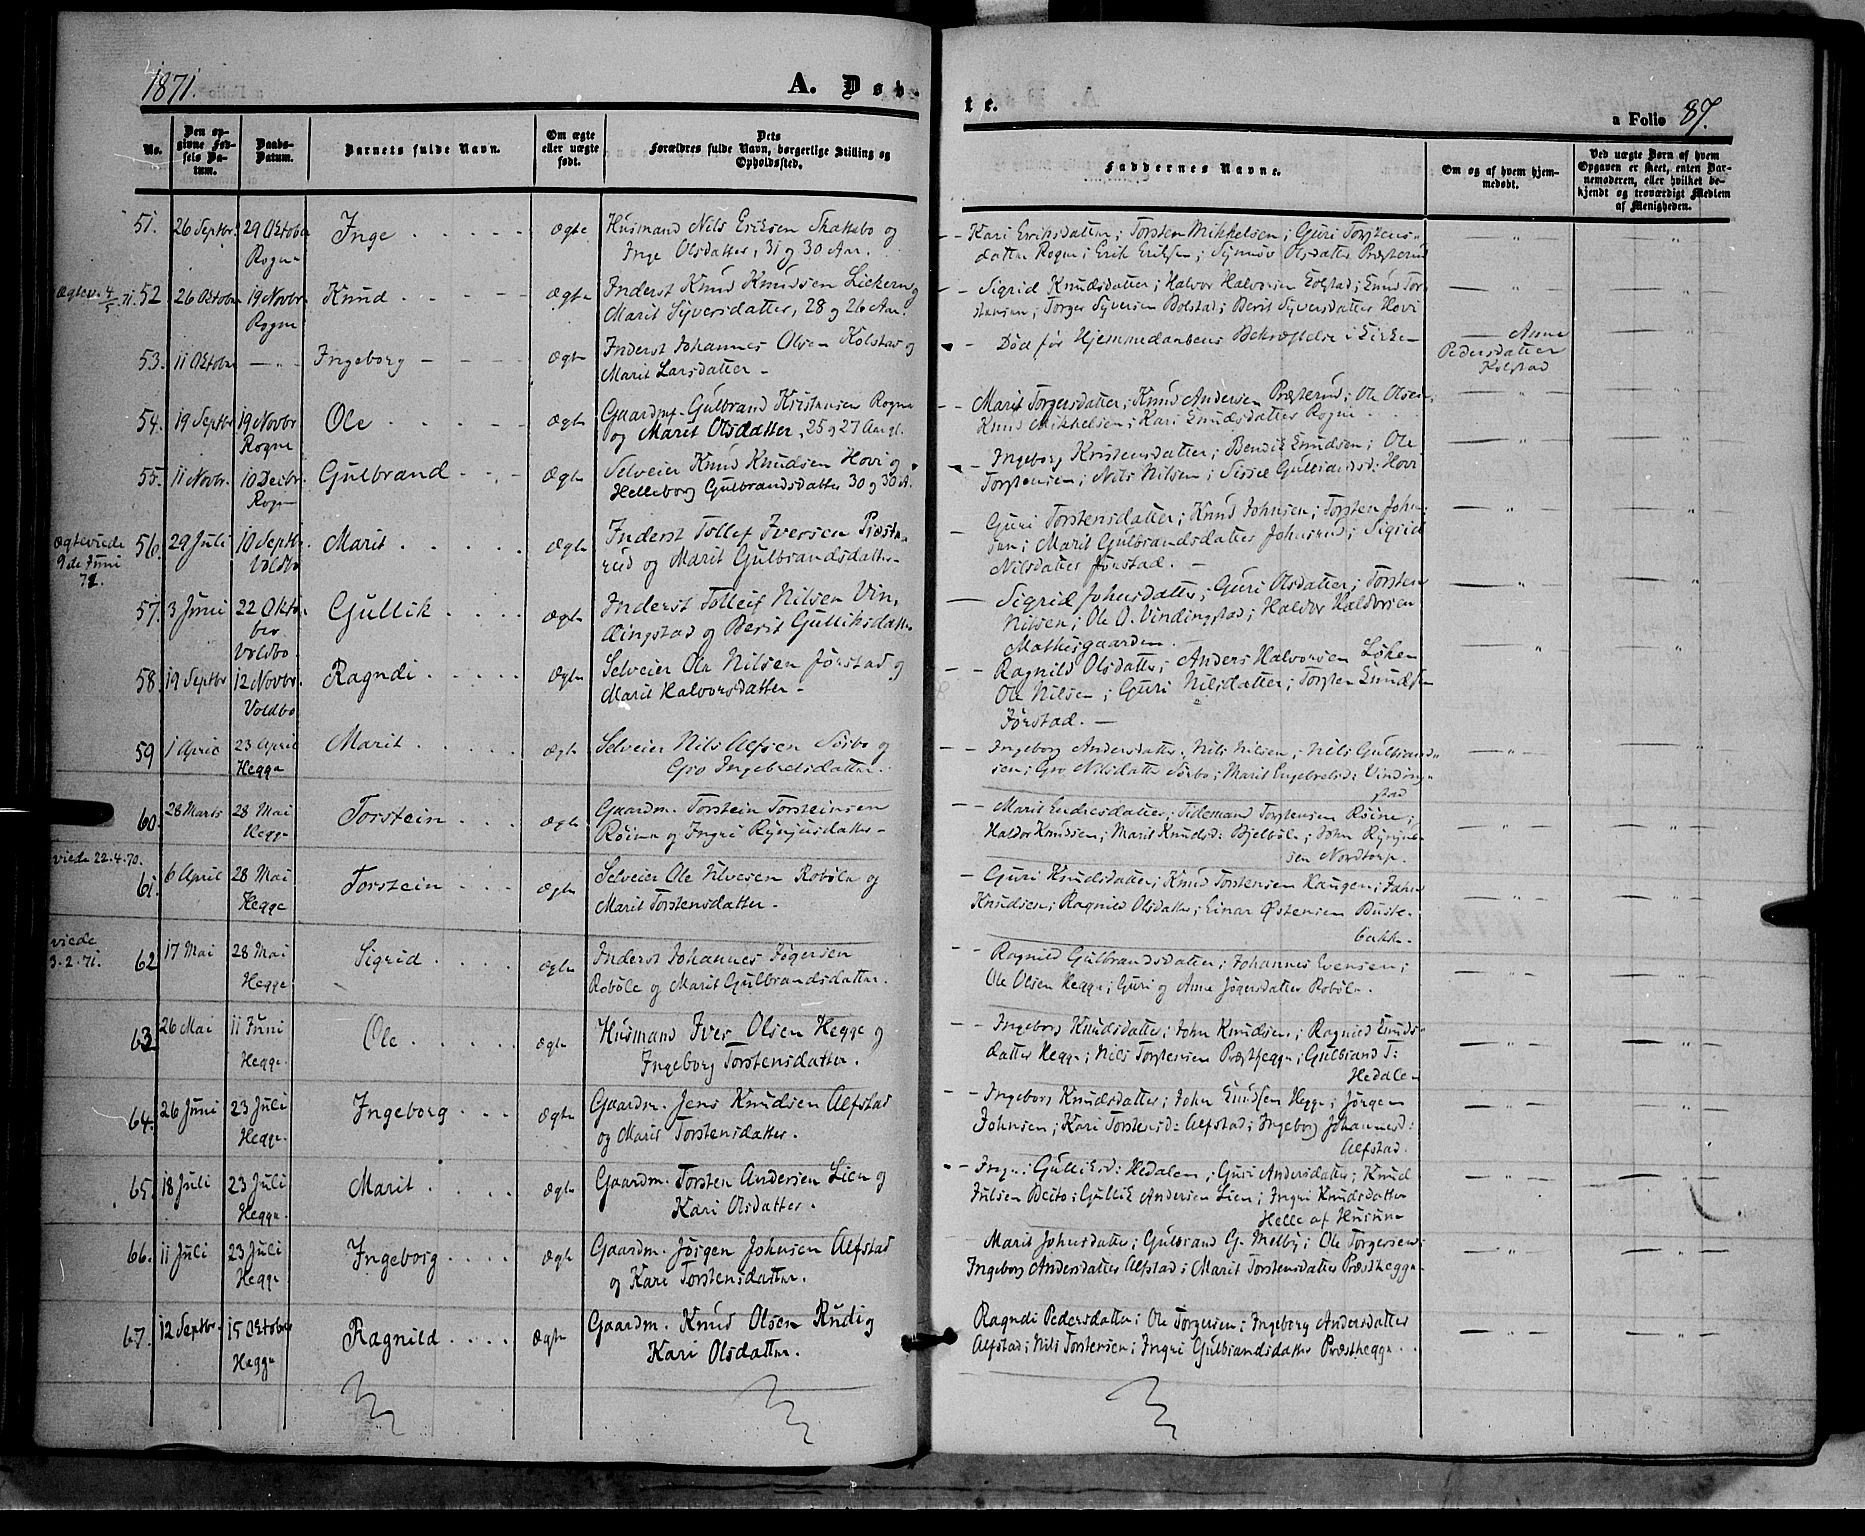 1871.
A. Døb-
te.
a Folio 87.
No.
Den op-
givne Fød-
sels Da-
tum.
Daabs-
Datum.
Barnets fulde Navn.
Om ægte
eller uægte
født.
Dets
Forældres fulde Navn, borgerlige Stilling og
Opholdssted.
Faddernes Navne.
Om og af hvem hjem-
medøbt.
Ved uægte Børn af hvem
Opgaven er skeet, enten Bar-
nemoderen, eller hvilket be-
kjendt og troværdigt Medlem
af Menigheden.
51. 26 Septbr. 29 Oktober Inge ægte Husmand Nils Eriksen Skattebo og
Rogne Inge Olsdatter, 31 og 30 Aar.
Kari Eriksdatter; Torsten Mikkelsen; Guri Torstens-
datter Rogne; Erik Eriksen; Synnøv Olsdatter Præsterud
Ægtev. 4/5 71. 52 26 Oktober 19 Novbr. Knud ægte Inderst Knud Knudsen Liekern og
Rogne Marit Syversdatter, 28 og 26 Aar.
Sigrid Knudsdatter; Halvor Halvorsen Kolstad; Knud Tor-
stensen; Torger Syversen Bolstad; Berit Syversdatter Hovi
53. 11 Oktober Ingeborg ægte Inderst Johannes Olsen Kolstad og
Marit Larsdatter
Død før Hjemmedaabens Bekræftelse i Kirken
Anne
Pedersdatter
Kolstad
54. 19 Septbr. 19 Novbr. Ole ægte Gaardm. Gulbrand Kristensen Rogne
Rogne og Marit Olsdatter, 25 og 27 Aar gl.
Marit Torgersdatter; Knud Andersen Præsterud; Ole Olsen;
Knud Mikkelsen; Kari Knudsdatter Rogne
55. 11 Novbr. 10 Decbr. Gulbrand ægte Selveier Knud Knudsen Hovi og
Rogne Helleborg Gulbrandsdatter 30 og 30 A.
Ingeborg Kristensdatter; Bendik Knudsen; Ole
Torstensen; Nils Nilsen; Sissel Gulbrandsd: Hovi
Ægteviede
9de Juni
72.
56. 29 Juli 10 Septbr. Marit ægte Inderst Tollef Iversen Præste-
Voldbo rud og Marit Gulbrandsdatter
Guri Torstensdatter; Knud Johnsen; Torsten John-
sen; Marit Gulbrandsdatter Johnsrud; Sigrid
Nilsdatter Jørstad.
57. 3 Juni 22 Okto- Gullik ægte Inderst Tolleif Nilsen Vin-
ber dingstad og Berit Gulliksdatter
Voldbo.
Sigrid Johnsdatter; Guri Olsdatter; Torsten
Nilsen; Ole O. Vindingstad; Haldor Haldorsen
Mathisgaarden.
58. 19 Septbr 12 Novbr. Ragndi ægte Selveier Ole Nilsen Jørstad og
Voldbo Marit Halvorsdatter
Ragnild Olsdatter; Anders Halvorsen Løken
Ole Nilsen; Guri Nilsdatter; Torsten Knudsen
Jørstad.
59 1 April 23 April Marit ægte Selveier Nils Alfsen Sørbo og
Hegge Gro Ingebretsdatter.
Ingeborg Andersdatter; Nils Nilsen; Nils Gulbrand-
sen; Gro Nilsdatter Sørbo; Marit Engebretsd: Vinding-
stad
60. 28 Marts 28 Mai Torstein ægte Gaardm. Torstein Torsteinsen
Hegge Røine og Ingri Rynjusdatter
Marit Endresdatter; Tidemand Torstensen Røine;
Haldor Knudsen; Marit Knudsd: Bjelbøle; John Rynju-
sen Nordtorp.
viede 22.4.70.
61. 6 April 28 Mai Torstein ægte Selveier Ole Ulvesen Robøle og
Hegge Marit Torstensdatter
Guri Knudsdatter; Knud Torstensen Haugen;
Knudsen; Ragnild Olsdatter; Einar Østensen Buste-
bakke.
viede
3.2.71.
62 17 Mai 28 Mai Sigrid ægte Inderst Johannes Jøgersen
Hegge Robøle og Marit Gulbrandsdatter.
Ragnild Gulbrandsdatter; Johannes Evensen;
Ole Olsen Hegge; Guri og Anne Jøgersdatter Robøle.
63 26 Mai 11 Juni Ole ægte Husmand Iver Olsen Hegge og
Hegge Ingeborg Torstensdatter.
Ingeborg Knudsdatter; John Knudsen; Ragnild Knuds-
datter Hegge; Nils Torstensen Præsthegge; Gulbrand T:
Hedalen
64. 26 Juni 23 Juli Ingeborg ægte Gaardm. Jens Knudsen Alfstad
Hegge og Marit Torstensdatter.
Ingeborg Knudsdatter; John Knudsen Hegge; Jørgen
Johnsen; Kari Torstensd: Alfstad; Ingeborg Johannesd:
Alfstad.
65. 18 Juli 23 Juli Marit ægte Gaardm. Torsten Andersen Lien og
Hegge Kari Olsdatter.
Ingri Gulliksd: Hedalen; Guri Andersdatter; Knud
Julsen Beito; Gullik Andersen Lien; Ingri Knudsdatter
Helle af Husum
66. 11 Juli 23 Juli Ingeborg ægte Gaardm. Jørgen Johnsen Alfstad
Hegge og Kari Torstensdatter.
Marit Johnsdatter; Gulbrand G. Melby; Ole Torgersen;
Ingeborg Andersdatter Alfstad; Marit Torstensdatter Præsthegge
67. 12 Septbr. 15 Oktober Ragnild ægte Gaardm. Knud Olsen Rudi og
Hegge Kari Olsdatter.
Ragndi Pedersdatter; Ole Torgersen; Ingeborg Andersdatter
Alfstad; Nils Torstensen; Ingri Gulbrandsdatter Præsthegge.